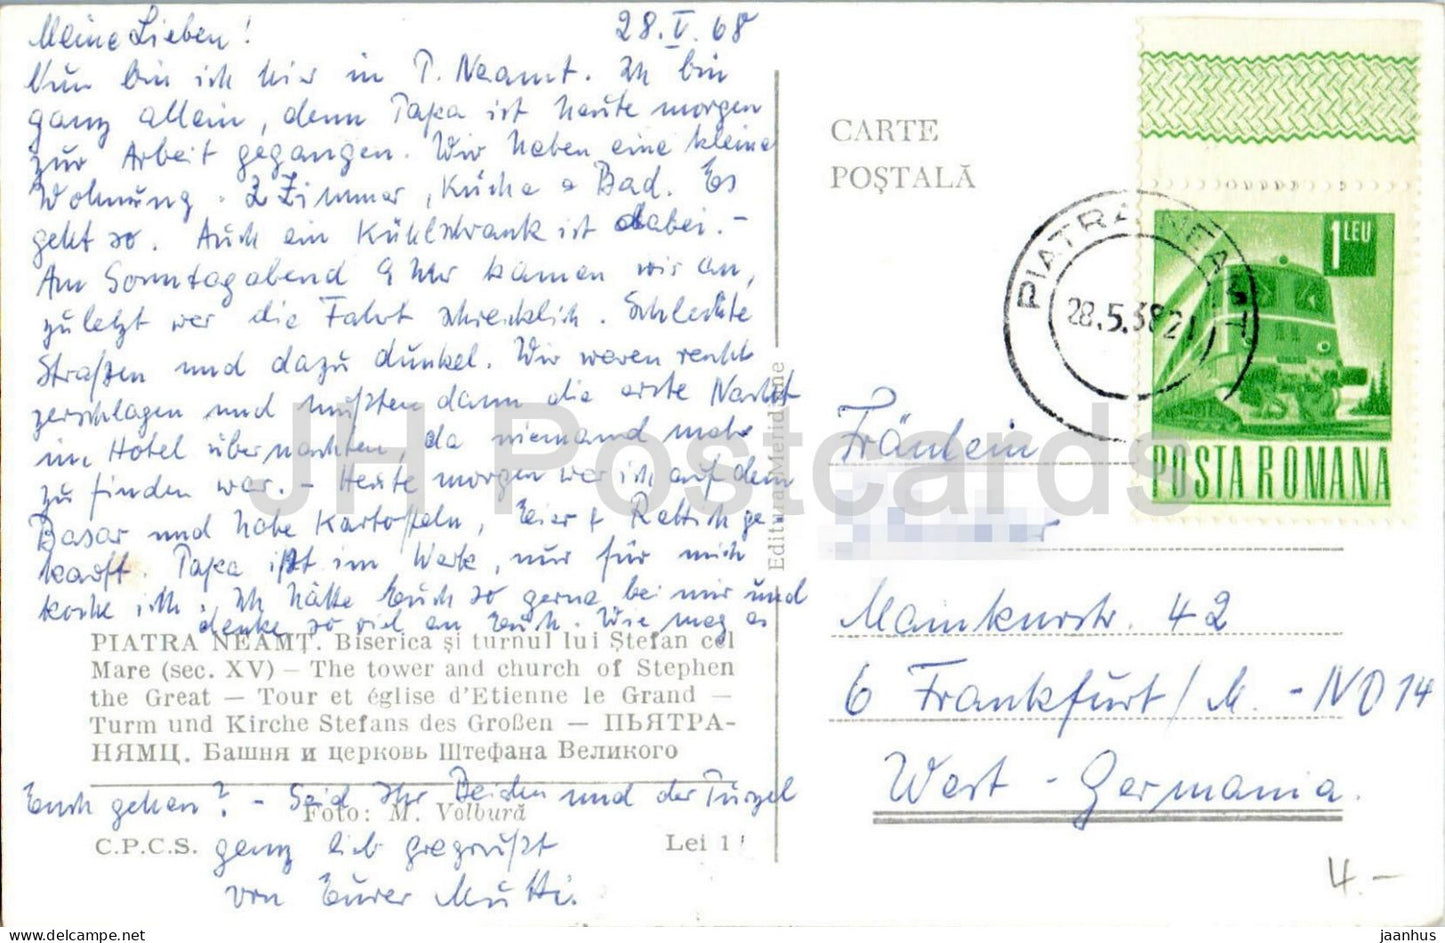 Meine Lieben! 28.V.68
Nun bin ich hier in P. Neamt. Ich bin
ganz allein, denn Papa ist heute morgen
zur Arbeit gegangen. Wir haben eine kleine
Wohnung. 2 Zimmer, Küche + Bad. Es
geht so. Auch ein Kühlschrank ist dabei. –
Am Sonntagabend 9 Uhr kamen wir an,
zuletzt war die Fahrt schrecklich. Schlechte
Straßen und dazu dunkel. Wir waren recht
zerschlagen und mußten dann die erste Nacht
im Hotel übernachten, da niemand mehr
zu finden war. – Heute morgen war ich auf dem
Basar und habe Kartoffeln, Eier + Rettich ge-
kauft. Papa ißt im Werk, nur für mich
koche ich. Ich hätte Euch so gerne bei mir und
denke so viel an Euch. Wie mag es
PIATRA NEAMȚ. Biserica și turnul lui Ștefan cel
Mare (sec. XV) – The tower and church of Stephen
the Great – Tour et église d'Etienne le Grand –
Turm und Kirche Stefans des Großen – ПЬЯТРА-
НЯМЦ. Башня и церковь Штефана Великого
Euch gehen? – Seid Ihr Beiden und der Purzel
Foto: M. Volbură
C.P.C.S. Lei 1
ganz lieb gegrüßt
von Eurer Mutti.
Editura Meridiane
CARTE
POȘTALĂ
PIATRA NEAMȚ
28.5.68 21
1 LEU
POSTA ROMANA
Fräulein
Mainkurstr. 42
6 Frankfurt/M. - NO 14
West-Germania.
4.–
JH Postcards
www.delcampe.net
jaanhus